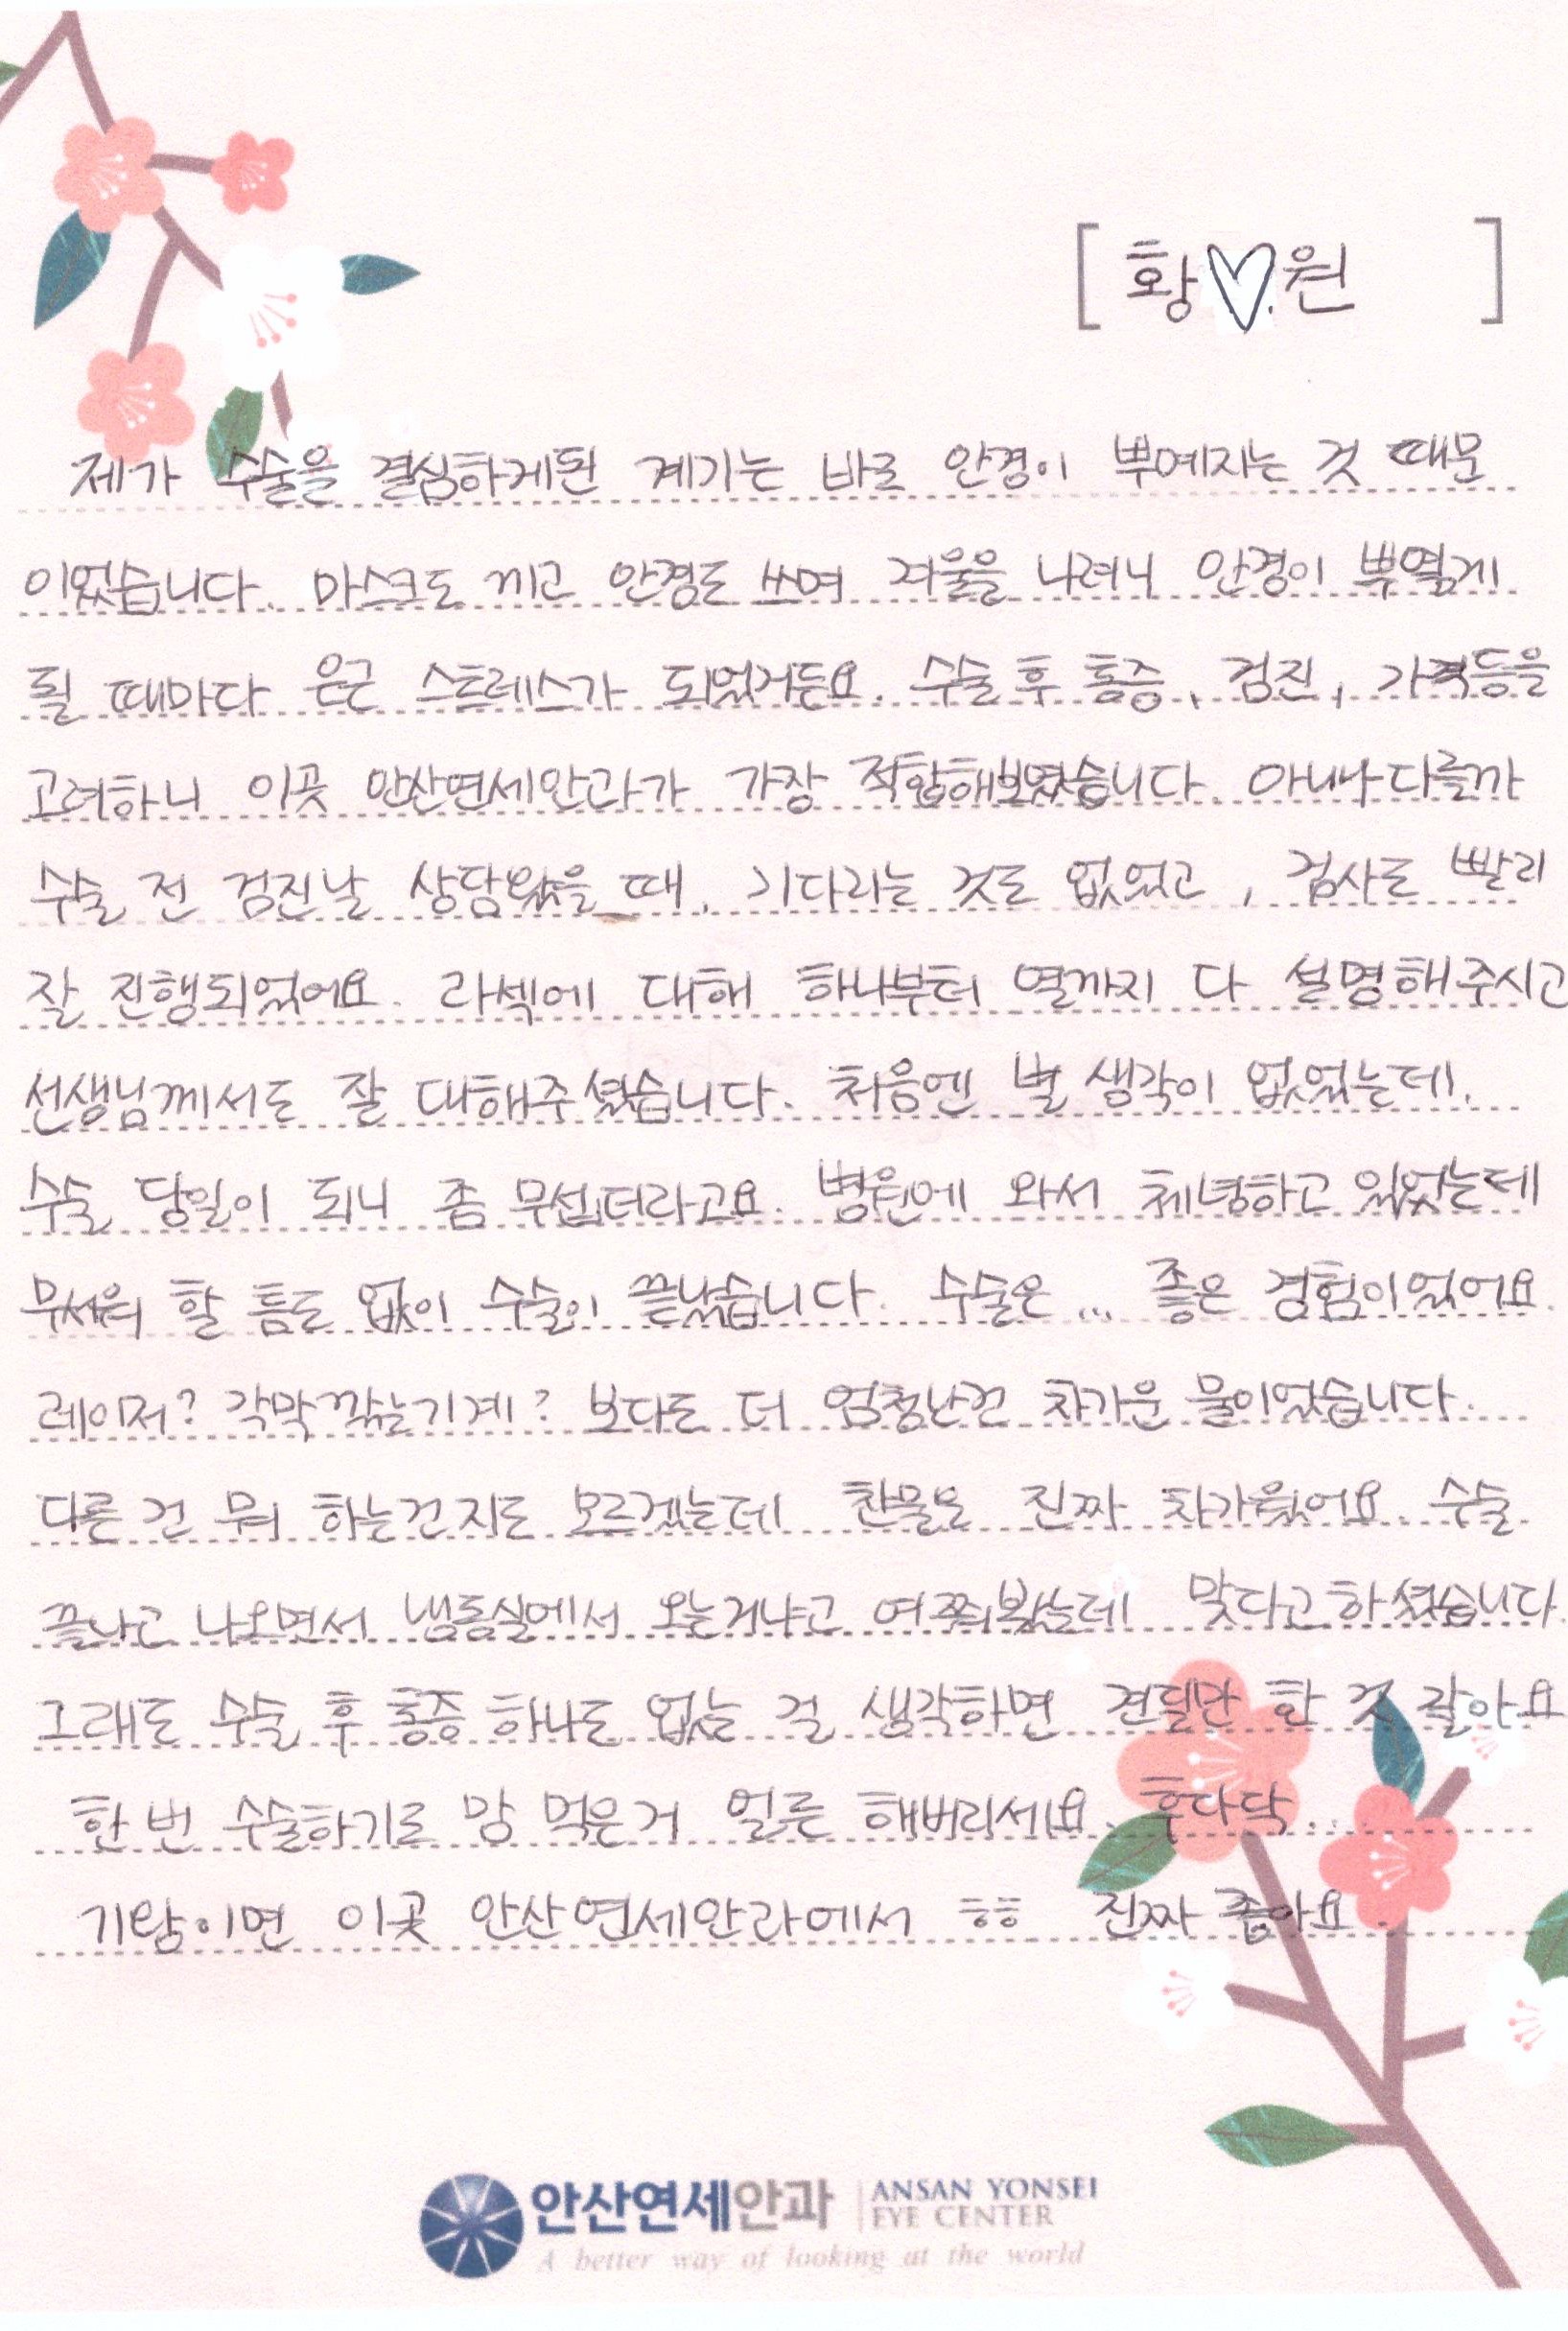 [황♡원]
제가 수술을 결심하게된 계기는 바로 안경이 뿌예지는 것 때문
이었습니다. 마스크도 끼고 안경도 쓰며 겨울을 나려니 안경이 뿌옇게
될 때마다 은근 스트레스가 되었거든요. 수술 후 통증, 검진, 가격등을
고려하니 이곳 안산연세안과가 가장 적합해보였습니다. 아니나 다를까
수술 전 검진날 상담왔을 때, 기다리는 것도 없었고, 검사도 빨리
잘 진행되었어요. 라섹에 대해 하나부터 열까지 다 설명해주시고
선생님께서도 잘 대해주셨습니다. 처음엔 별 생각이 없었는데,
수술 당일이 되니 좀 무섭더라고요. 병원에 와서 체념하고 있었는데
무서워 할 틈도 없이 수술이 끝났습니다. 수술은 ... 좋은 경험이었어요.
레이저? 각막깎는기계? 보다도 더 엄청난건 차가운 물이었습니다.
다른 건 뭐 하는건지도 모르겠는데 찬물은 진짜 차가웠어요. 수술
끝나고 나오면서 냉동실에서 오는거냐고 여쭤봤는데 맞다고하셨습니다.
그래도 수술 후 통증 하나도 없는 걸 생각하면 견딜만 한 것 같아요
한 번 수술하기로 맘 먹은거 얼른 해버리세요. 후다닥...
기왕이면 이곳 안산연세안과에서 ㅎㅎ 진짜 좋아요.
안산연세안과 ANSAN YONSEI
EYE CENTER
A better way of looking at the world